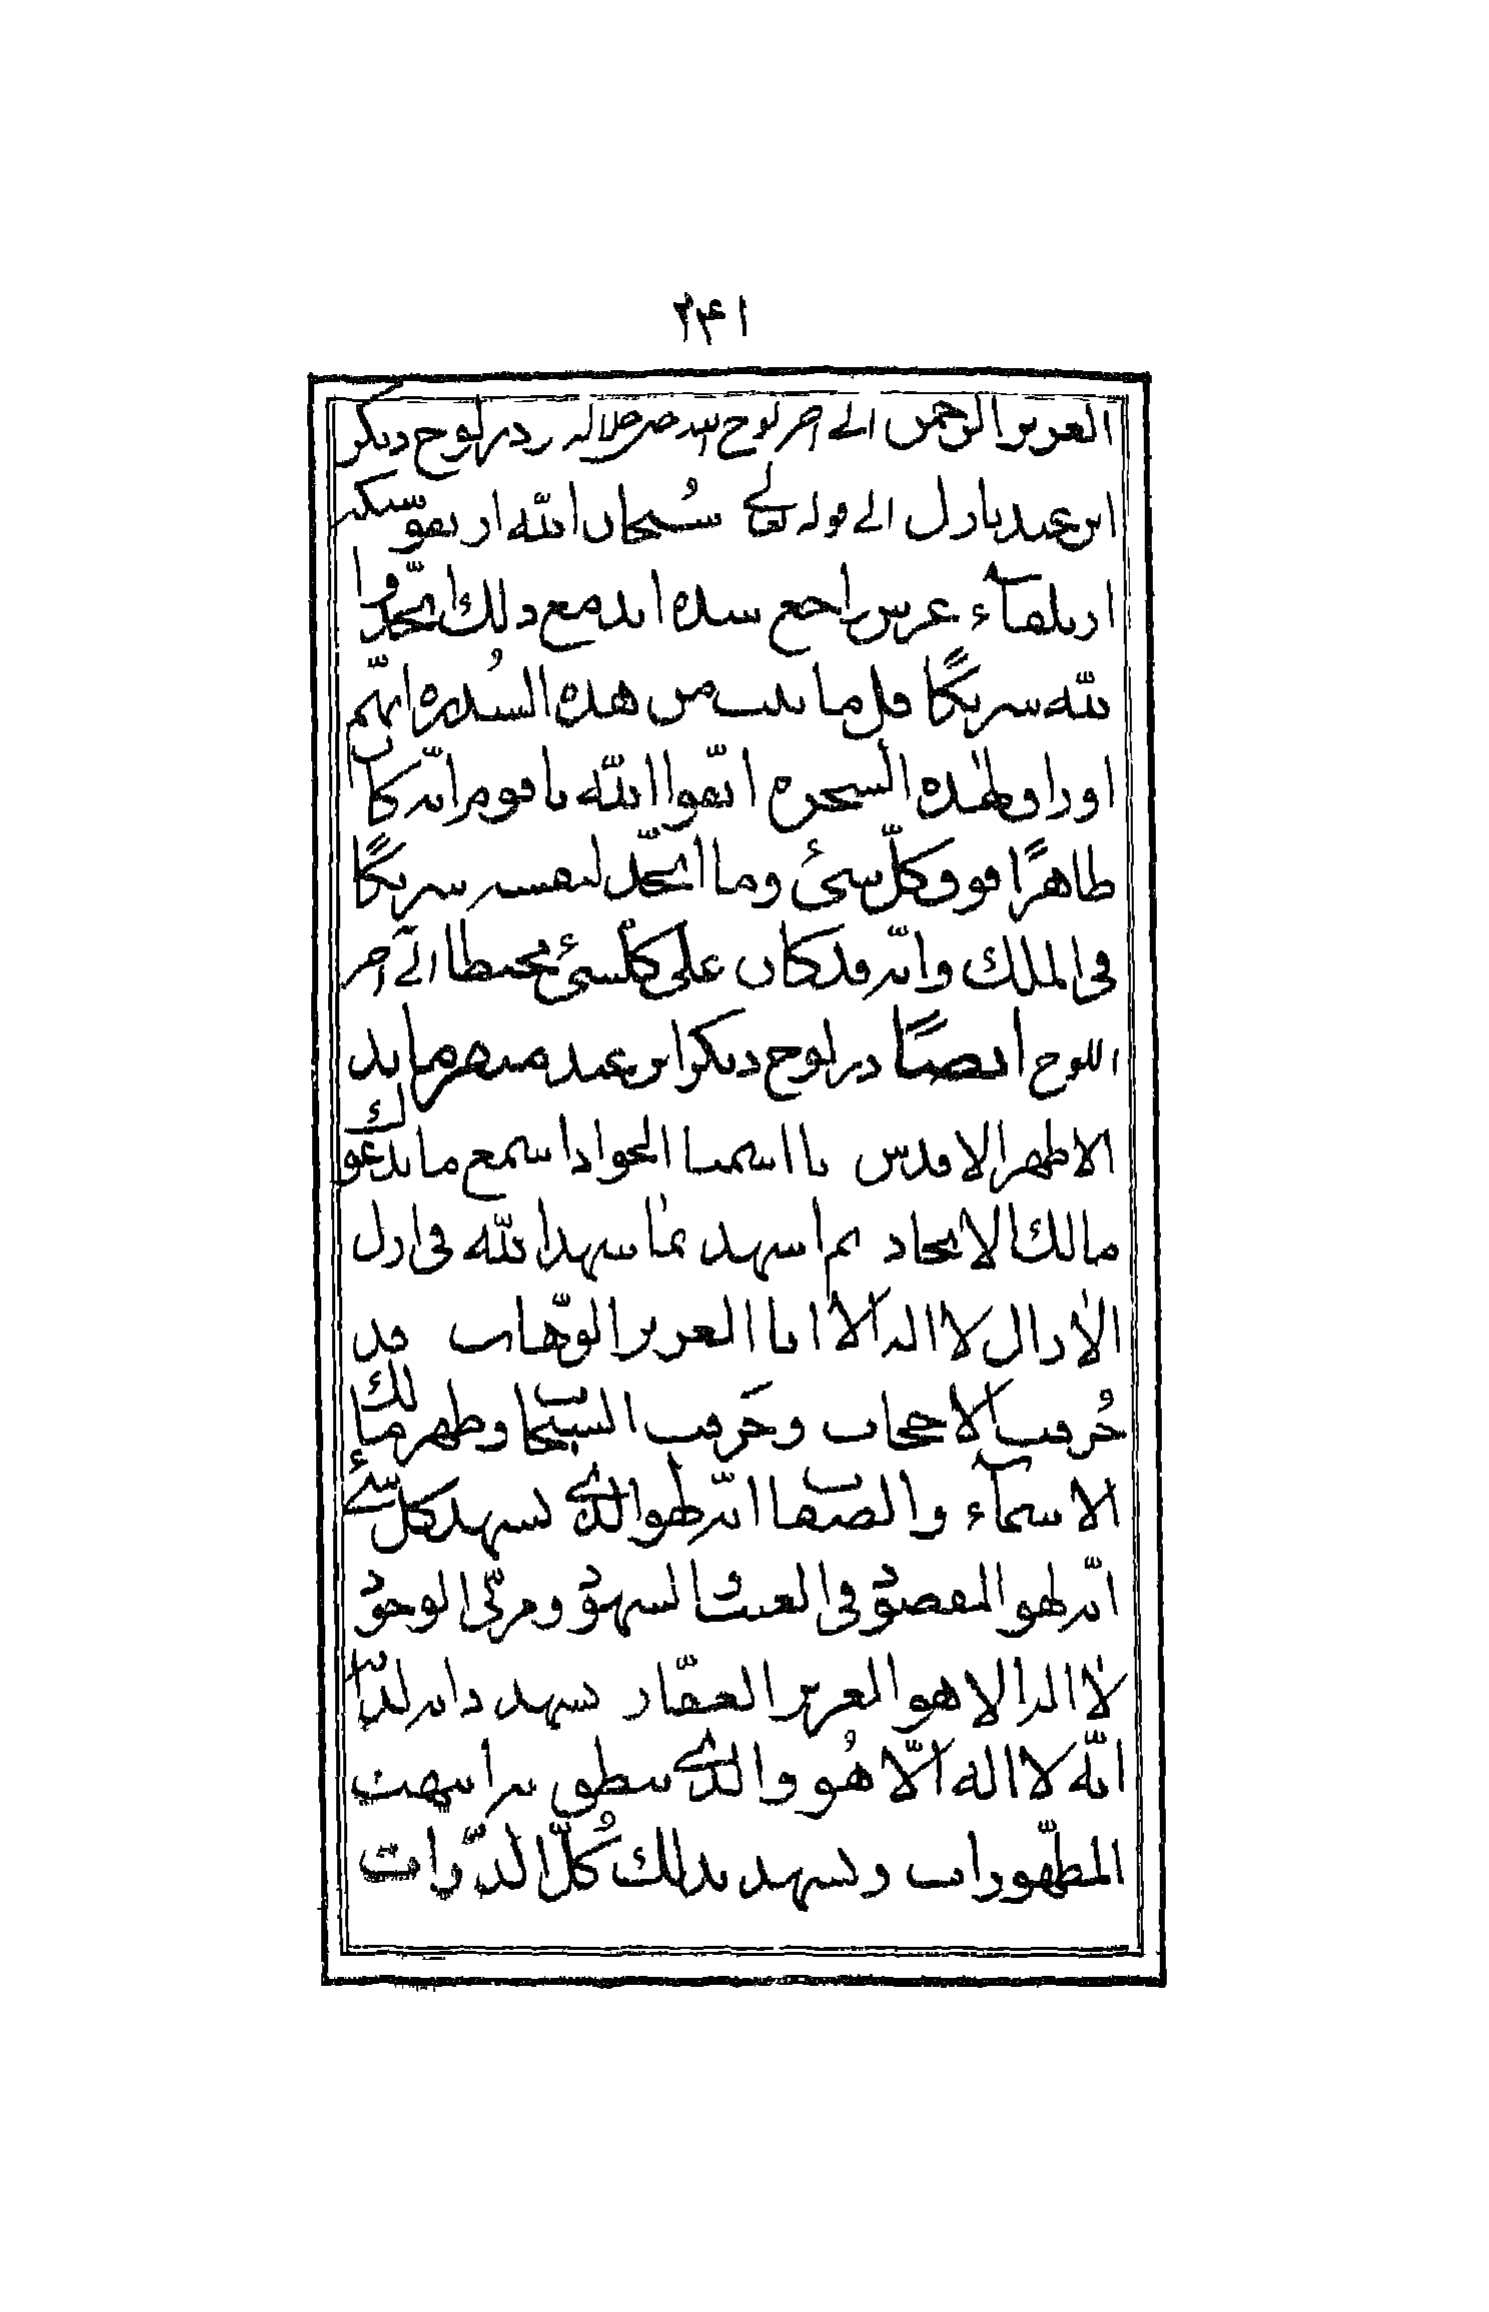 ۲۴۱
العزیز الرحمن الی آخر لوح الله جل جلاله و در لوح دیگر
این عید نازل الی قوله تعالی سُبحان الله از نفوسیکه
از تلقآء عرش راجع شده اند مع ذلک اتّخذوا
لله شریکًا قل ما نبت من هذه السُدرة انهّم
اوراق لهٰذه الشجرة اتّقوا الله یا قوم انّه کان
ظاهرًا فوق کلّ شیء و ما اتّخذ لنفسه شریکًا
فی الملک و انّه قد کان علی کلّ شیء محیطا الی آخر
اللوح ایضًا در لوح دیگر این عید میفرماید
الاطهر الاقدس یا اسمنا الجواد اسمع ما یدعوک
مالک الایجاد ثم اشهد بما شهد الله فی ازل
الاٰزال لا اله الا انا العزیز الوهّاب قد
خُرقت الاحجاب و خَرقت السّبحات و ظهر مالک
الاسمآء و الصفات انّه لهو الذی یشهد کل شیء
انّه لهو المقصود فی الغیب و الشهود و مربّی الوجود
لا اله الا هو العزیز الغفّار شهد ذاته لذاته
انّه لا اله الّا هُو و الذی ینطق
المطهّورات و یشهد بذلک کُلّ الذّرات